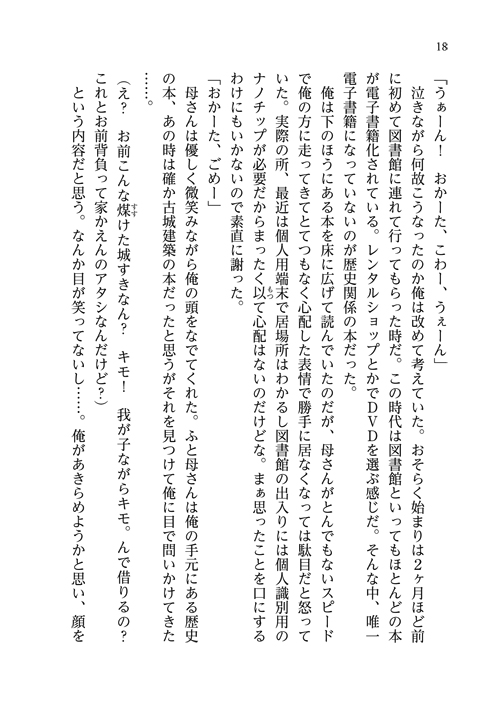 18
「うぁーん！　おかーた、こわー、うぇーん」
　泣きながら何故こうなったのか俺は改めて考えていた。おそらく始まりは２ヶ月ほど前
に初めて図書館に連れて行ってもらった時だ。この時代は図書館といってもほとんどの本
が電子書籍化されている。レンタルショップとかでＤＶＤを選ぶ感じだ。そんな中、唯一
電子書籍になっていないのが歴史関係の本だった。
　俺は下のほうにある本を床に広げて読んでいたのだが、母さんがとんでもないスピード
で俺の方に走ってきてとてつもなく心配した表情で勝手に居なくなっては駄目だと怒って
いた。実際の所、最近は個人用端末で居場所はわかるし図書館の出入りには個人識別用の
ナノチップが必要だからまったく以もって心配はないのだけどな。まぁ思ったことを口にする
わけにもいかないので素直に謝った。
「おかーた、ごめー」
　母さんは優しく微笑みながら俺の頭をなでてくれた。ふと母さんは俺の手元にある歴史
の本、あの時は確か古城建築の本だったと思うがそれを見つけて俺に目で問いかけてきた
……。
（え？　お前こんな煤すすけた城すきなん？　キモ！　我が子ながらキモ。んで借りるの？
これとお前背負って家かえんのアタシなんだけど？）
　という内容だと思う。なんか目が笑ってないし……。俺があきらめようかと思い、顔を